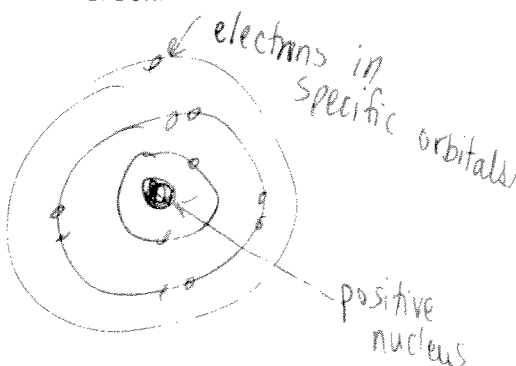 electrons in
specific orbitals
positive
nucleus